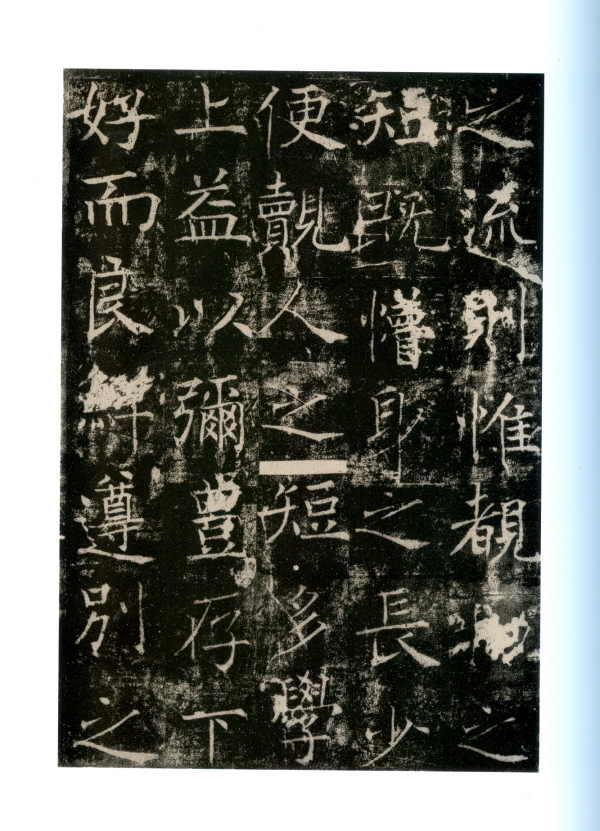 之流則惟覩之
知既懵身之長少
便覿人之短多學
上益以彌豊存下
好而良遵別之